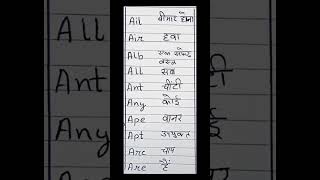 Ail बीमार होना
Air हवा
Alb एक सफेद वस्त्र
All सब
Ant चींटी
Any कोई
Ape वानर
Apt उपयुक्त
Arc चाप
Are हैं